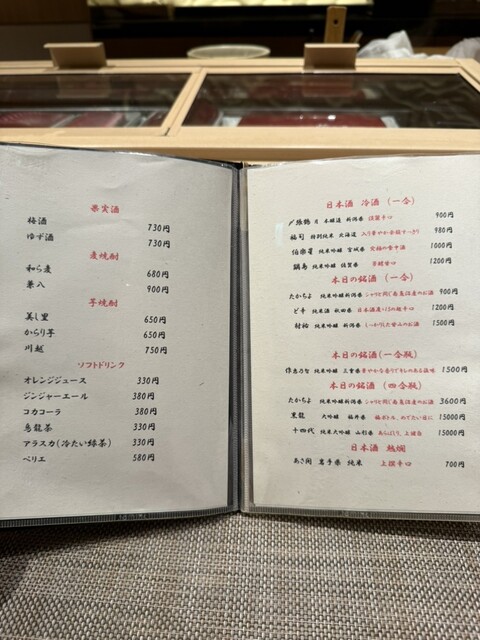 果実酒
梅酒 730円
ゆず酒 730円
麦焼酎
和ら麦 680円
兼八 900円
芋焼酎
美し里 650円
からり芋 650円
川越 750円
ソフトドリンク
オレンジジュース 330円
ジンジャーエール 380円
コカコーラ 380円
烏龍茶 330円
アラスカ(冷たい緑茶) 330円
ペリエ 580円
日本酒 冷酒 (一合)
〆張鶴 月 本醸造 新潟県 淡麗辛口 900円
福司 特別純米 北海道 980円
伯楽星 純米吟醸 宮城県 究極の食中酒 1000円
鍋島 純米吟醸 佐賀県 芳醇甘口 1200円
本日の銘酒 (一合)
たかちよ 純米吟醸 新潟県 900円
ど辛 純米酒 秋田県 日本酒度+15の超辛口 1200円
純米吟醸 新潟県 しっかりした甘口のお酒 1500円
本日の銘酒(一合瓶)
作 恵乃智 純米吟醸 三重県 華やかな香りでキレのある旨味 1500円
本日の銘酒 (四合瓶)
たかちよ 純米吟醸 新潟県 3600円
黒龍 大吟醸 福井県 15000円
十四代 純米大吟醸 山形県 15000円
日本酒 熱燗
あさ開 岩手県 純米 上撰辛口 700円